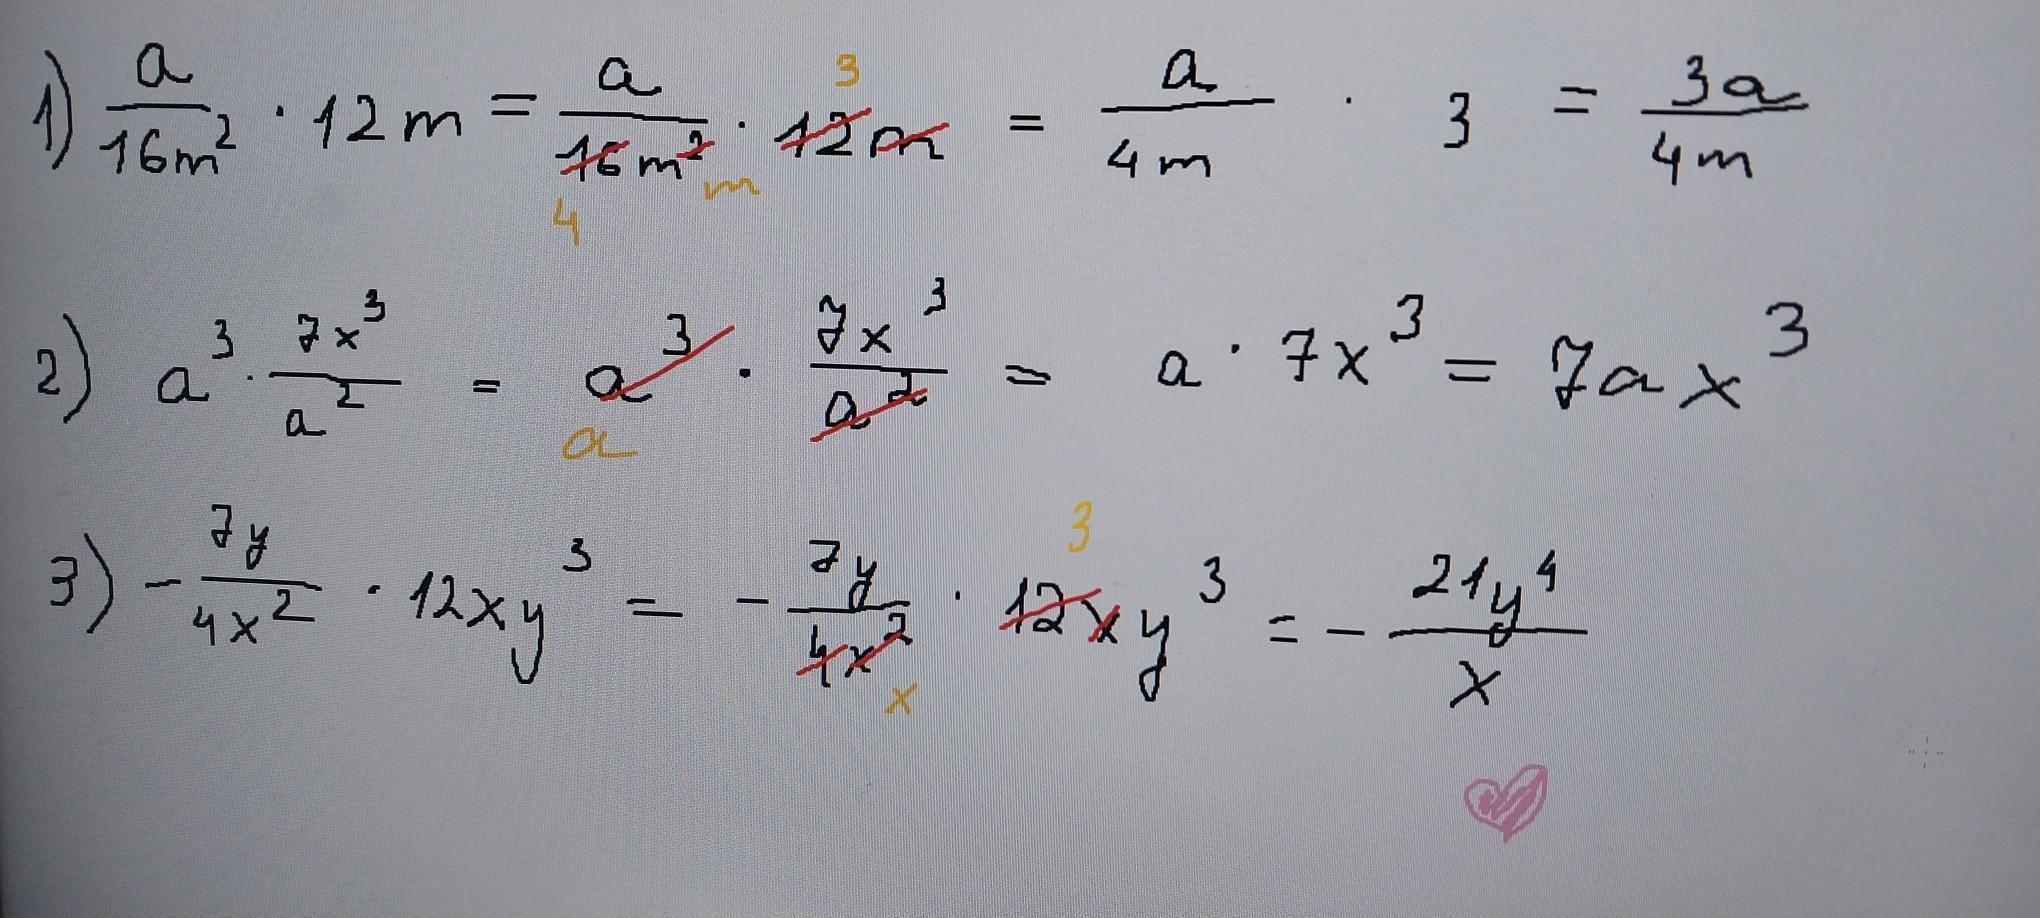 1) a/16m² · 12m = a/16m² · 12m = a/4m · 3 = 3a/4m
3
4 m
2) a³ · 7x³/a² = a³ · 7x³/a² = a · 7x³ = 7ax³
a
3) -7y/4x² · 12xy³ = -7y/4x² · 12xy³ = -21y⁴/x
3
x